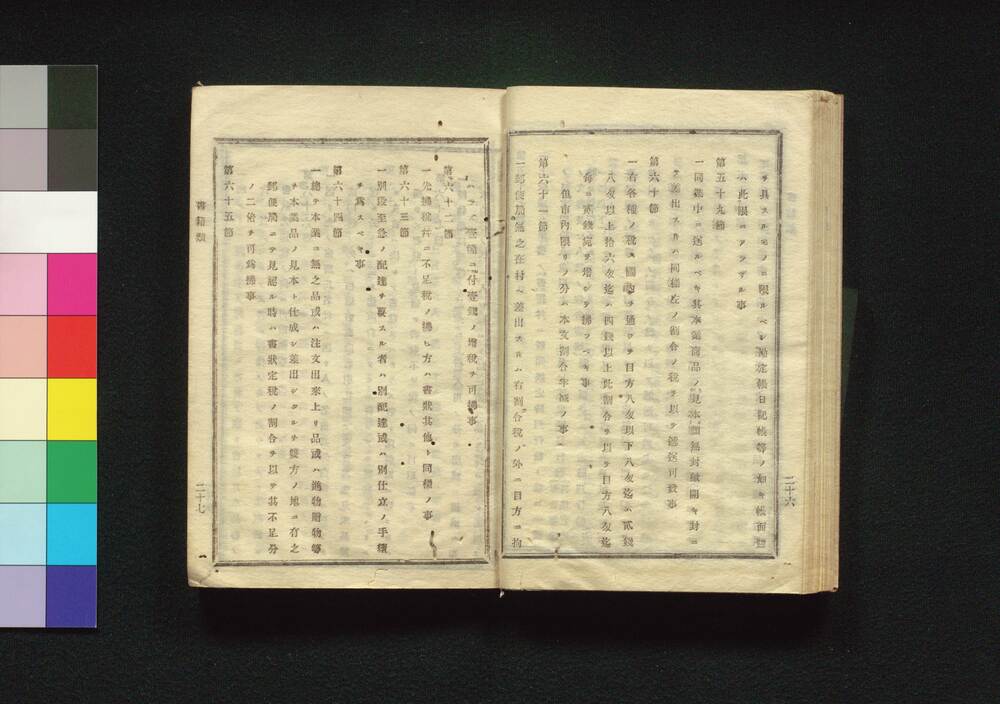 ヲ具スルモノニ限ルベシ 帳日記帳等ノ如キ帳面類
ハ此限ニアラザル事
第五十九節
一同國中ニ送ルベキ其本業商品ノ見本類無封或開キ封ニ
テ差出スルハ同樣左ノ割合ノ税ヲ以テ遞送可致事
第六十節
一右各種ノ税ハ國内ヲ通シテ目方八匁以下八匁迄ハ貳錢
八匁以上拾六匁迄ハ四錢以上此割合ヲ以テ目方八匁迄
每ニ貳錢宛ヲ增シテ拂フベキ事
但市內限リノ分ハ本文割合半減ノ事
第六十一節
一郵便局無之在村ヘ差出スルハ右割合税ノ外ニ目方ニ拘
二十六
ハラズ壹個ニ付壹錢ノ增税ヲ可拂事
第六十二節
一先拂税幷ニ不足税ノ拂ヒ方ハ書狀其他ト同樣ノ事
第六十三節
一別段至急ノ配達ヲ要スル者ハ別配達或ハ別仕立ノ手續
ヲ爲スベキ事
第六十四節
一總テ本業ニ無之品或ハ注文出來上リ品或ハ進物贈物等
ヲ本業品ノ見本ト仕成シ差出シタルヲ雙方ノ地ニ有之
郵便局ニテ見認ル時ハ書狀定税ノ割合ヲ以テ其不足分
ノ二倍ヲ可爲拂事
第六十五節
書籍類
二十七